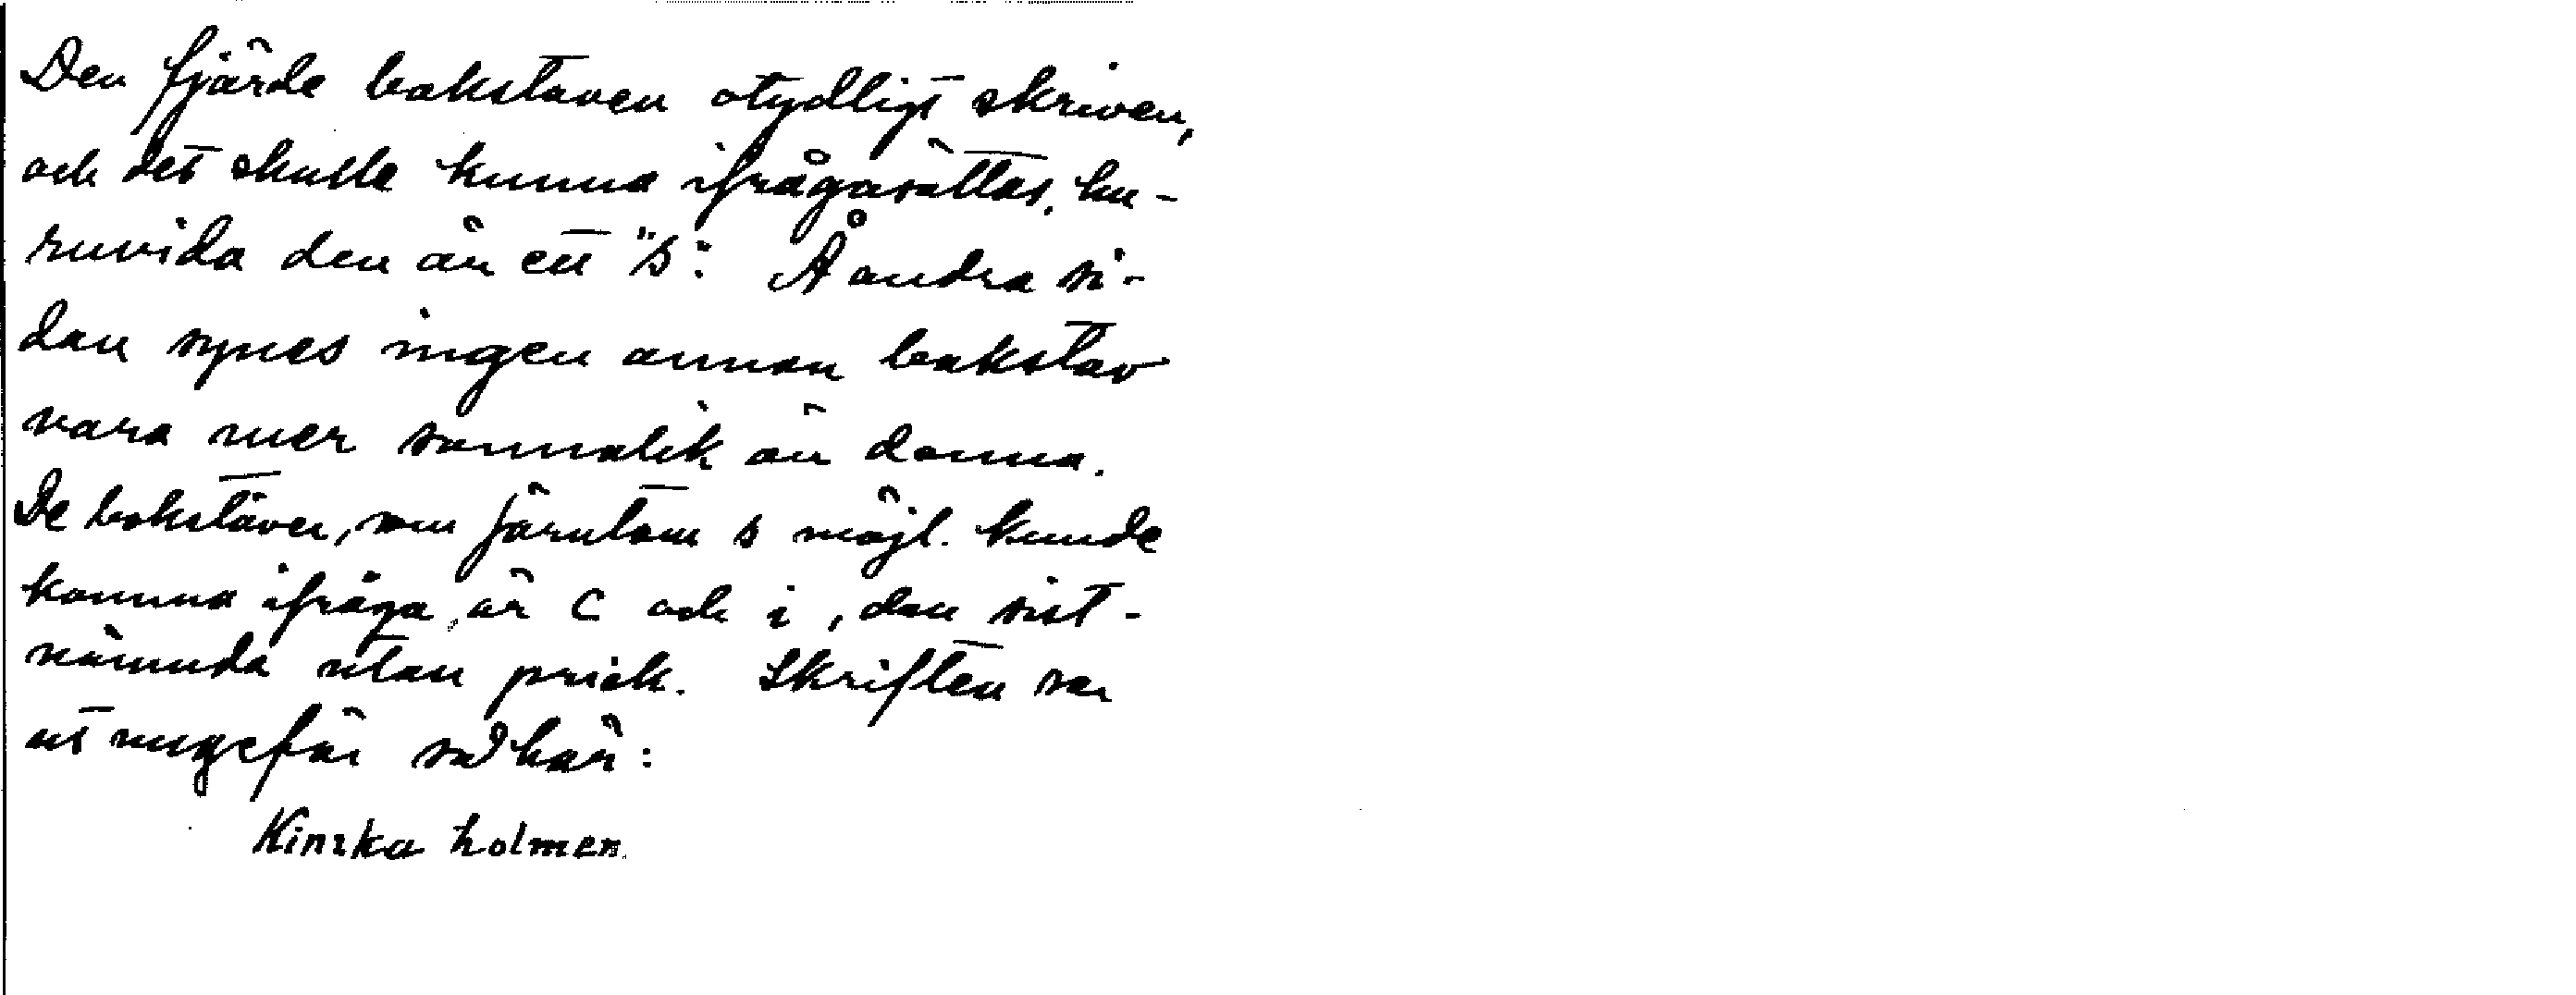 Den fjärde bokstaven otydligt skriven,
och det skulle kunna ifrågasättas, hu-
ruvida den är ett "s". Å andra si-
dan synes ingen annan bokstav
vara mer sannolik än denna.
De bokstäver, som förutom s möjl. kunde
komma ifråga, är c och i, den sist-
nämnda utan prick. Skriften ser
ut ungefär så här:
Kinska holmen.